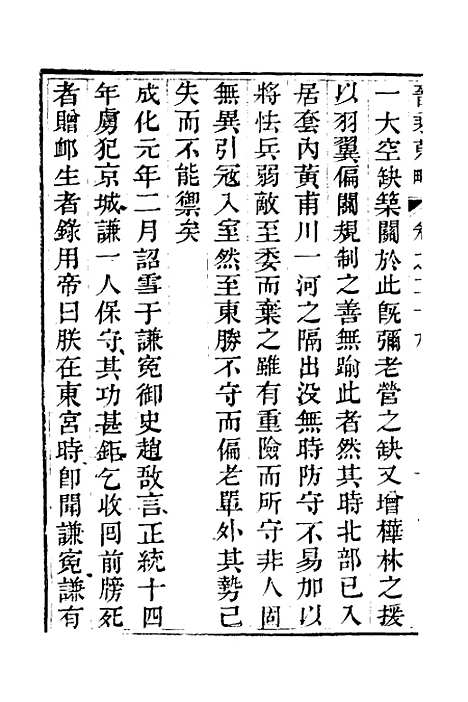 一大空缺築關於此旣彌老營之缺又增樺林之援
以羽翼偏關規制之善無踰此者然其時北部已入
居套內黃甫川一河之隔出没無時防守不易加以
將怯兵弱敵至委而棄之雖有重險而所守非人固
無異引宼入室然至東勝不守而偏老單外其勢已
失而不能禦矣
成化元年二月詔雪于謙寃御史趙敔言正統十四
年虜犯京城謙一人保守其功甚鉅乞收囘前牓死
者贈䘏生者錄用帝曰朕在東宮時卽聞謙寃謙有